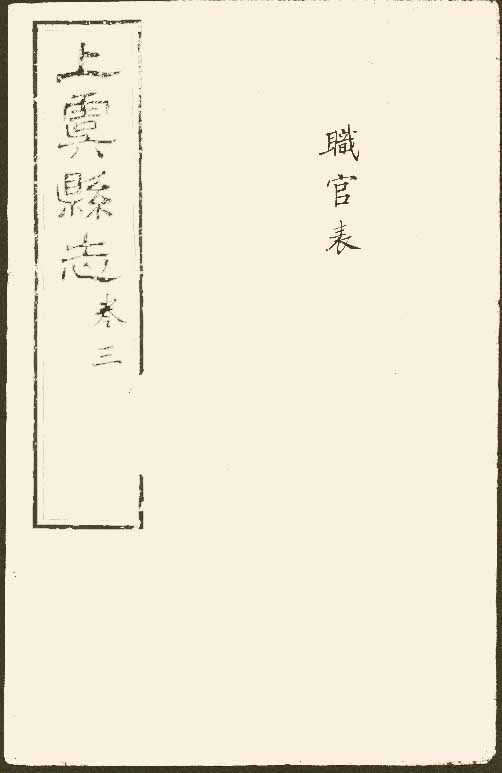 職官表
上虞縣志
卷三